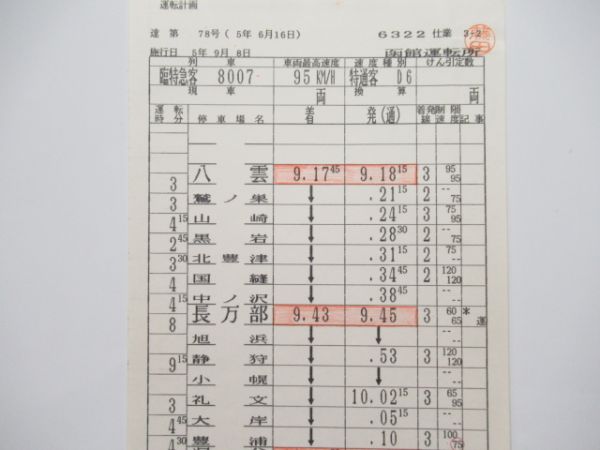 運転計画
達 第 78号( 5年 6月16日) 6322 仕業 3-2
施行日 5年 9月 8日 函館運転所
列車 車両最高速度 速度種別 けん引定数
臨特急客 8007 95 KM/H 特通客 D6
現車 両 換算 両
運転時分 停車場名 着 発(通) 着発線 制限速度 記事
八雲 9.17 45 9.18 15 3 95 95
3
鷲ノ巣 ↓ .21 15 2 -- 75
3
山崎 ↓ .24 15 3 75 95
4 15
黒岩 ↓ .28 30 2 -- 75
2 45
北豊津 ↓ .31 15 2 -- 75
3 30
国縫 ↓ .34 45 2 120 120
4
中ノ沢 ↓ .38 45 -- --
4 15
長万部 9.43 9.45 3 60 65 * 運
8
旭浜 ↓ ↓ -- --
静狩 ↓ .53 3 120 120
9 15
小幌 ↓ ↓ -- --
礼文 ↓ 10.02 15 3 65 95
3
大岸 ↓ .05 15 -- --
4 45
豊浦 ↓ .10 3 100 75
4 30